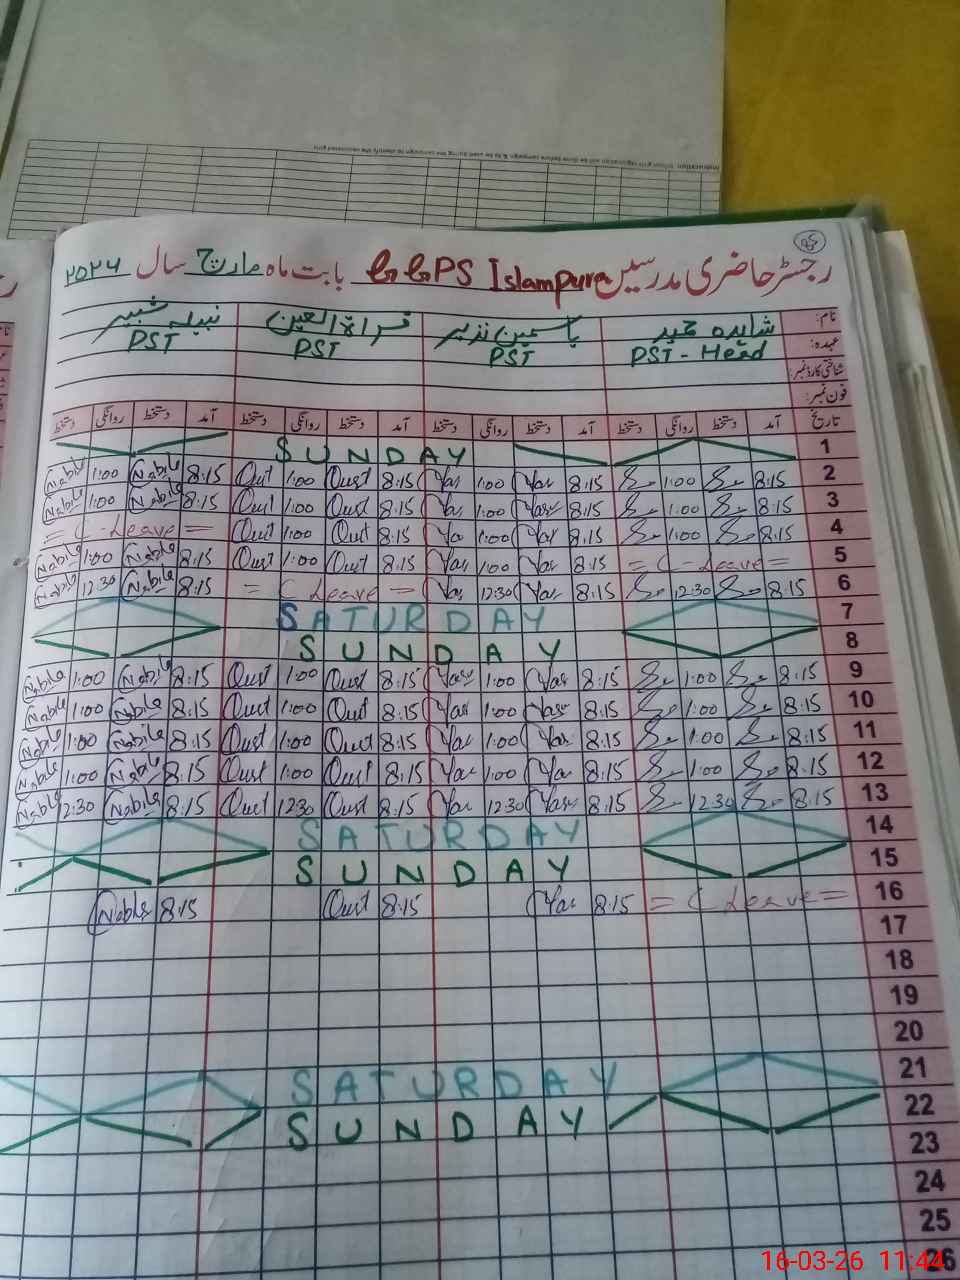 رجسٹر حاضری مدرسین GGPS Islampura بابت ماہ مارچ سال ۲۰۲۶
نام: شاہدہ حمید یاسمین نذیر قراۃ العین نبیلہ شبیر
عہدہ: PST - Head PST PST PST
شناختی کارڈ نمبر:
فون نمبر:
تاریخ آمد دستخط روانگی دستخط آمد دستخط روانگی دستخط آمد دستخط روانگی دستخط آمد دستخط روانگی دستخط
1 SUNDAY
2 8:15 1:00 8:15 Yas 1:00 Yas 8:15 Qust 1:00 Qust 8:15 Nabila 1:00 Nabila
3 8:15 1:00 8:15 Yas 1:00 Yas 8:15 Qust 1:00 Qust 8:15 Nabila 1:00 Nabila
4 8:15 1:00 8:15 Yas 1:00 Yas 8:15 Qust 1:00 Qust = C-Leave =
5 = C-Leave = 8:15 Yas 1:00 Yas 8:15 Qust 1:00 Qust 8:15 Nabila 1:00 Nabila
6 8:15 12:30 8:15 Yas 12:30 Yas = C Leave = 8:15 Nabila 12:30 Nabila
7 SATURDAY
8 SUNDAY
9 8:15 1:00 8:15 Yas 1:00 Yas 8:15 Qust 1:00 Qust 8:15 Nabila 1:00 Nabila
10 8:15 1:00 8:15 Yas 1:00 Yas 8:15 Qust 1:00 Qust 8:15 Nabila 1:00 Nabila
11 8:15 1:00 8:15 Yas 1:00 Yas 8:15 Qust 1:00 Qust 8:15 Nabila 1:00 Nabila
12 8:15 1:00 8:15 Yas 1:00 Yas 8:15 Qust 1:00 Qust 8:15 Nabila 1:00 Nabila
13 8:15 12:30 8:15 Yas 12:30 Yas 8:15 Qust 12:30 Qust 8:15 Nabila 12:30 Nabila
14 SATURDAY
15 SUNDAY
16 = C Leave = 8:15 Yas 8:15 Qust 8:15 Nabila
17
18
19
20
21 SATURDAY
22 SUNDAY
23
24
25
26
16-03-26 11:44